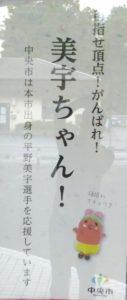 目指せ頂点！がんばれ！
美宇ちゃん！
中央市は本市出身の平野美宇選手を応援しています
中央市